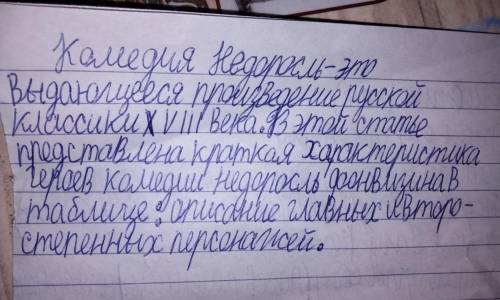 Комедия Недоросль-это
выдающееся произведение русской
классики XVIII века. В этой статье
представлена краткая характеристика
героев комедии недоросль фонвизина в
таблице: описание главных и второ-
степенных персонажей.